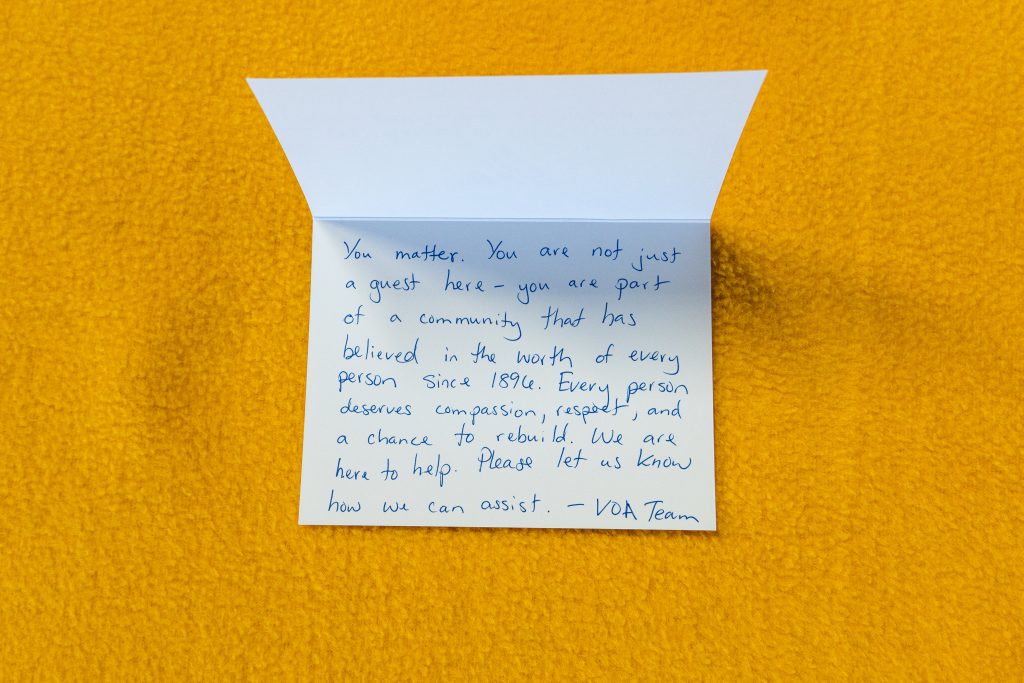 You matter. You are not just
a guest here - you are part
of a community that has
believed in the worth of every
person since 1896. Every person
deserves compassion, respect, and
a chance to rebuild. We are
here to help. Please let us know
how we can assist. - VOA Team